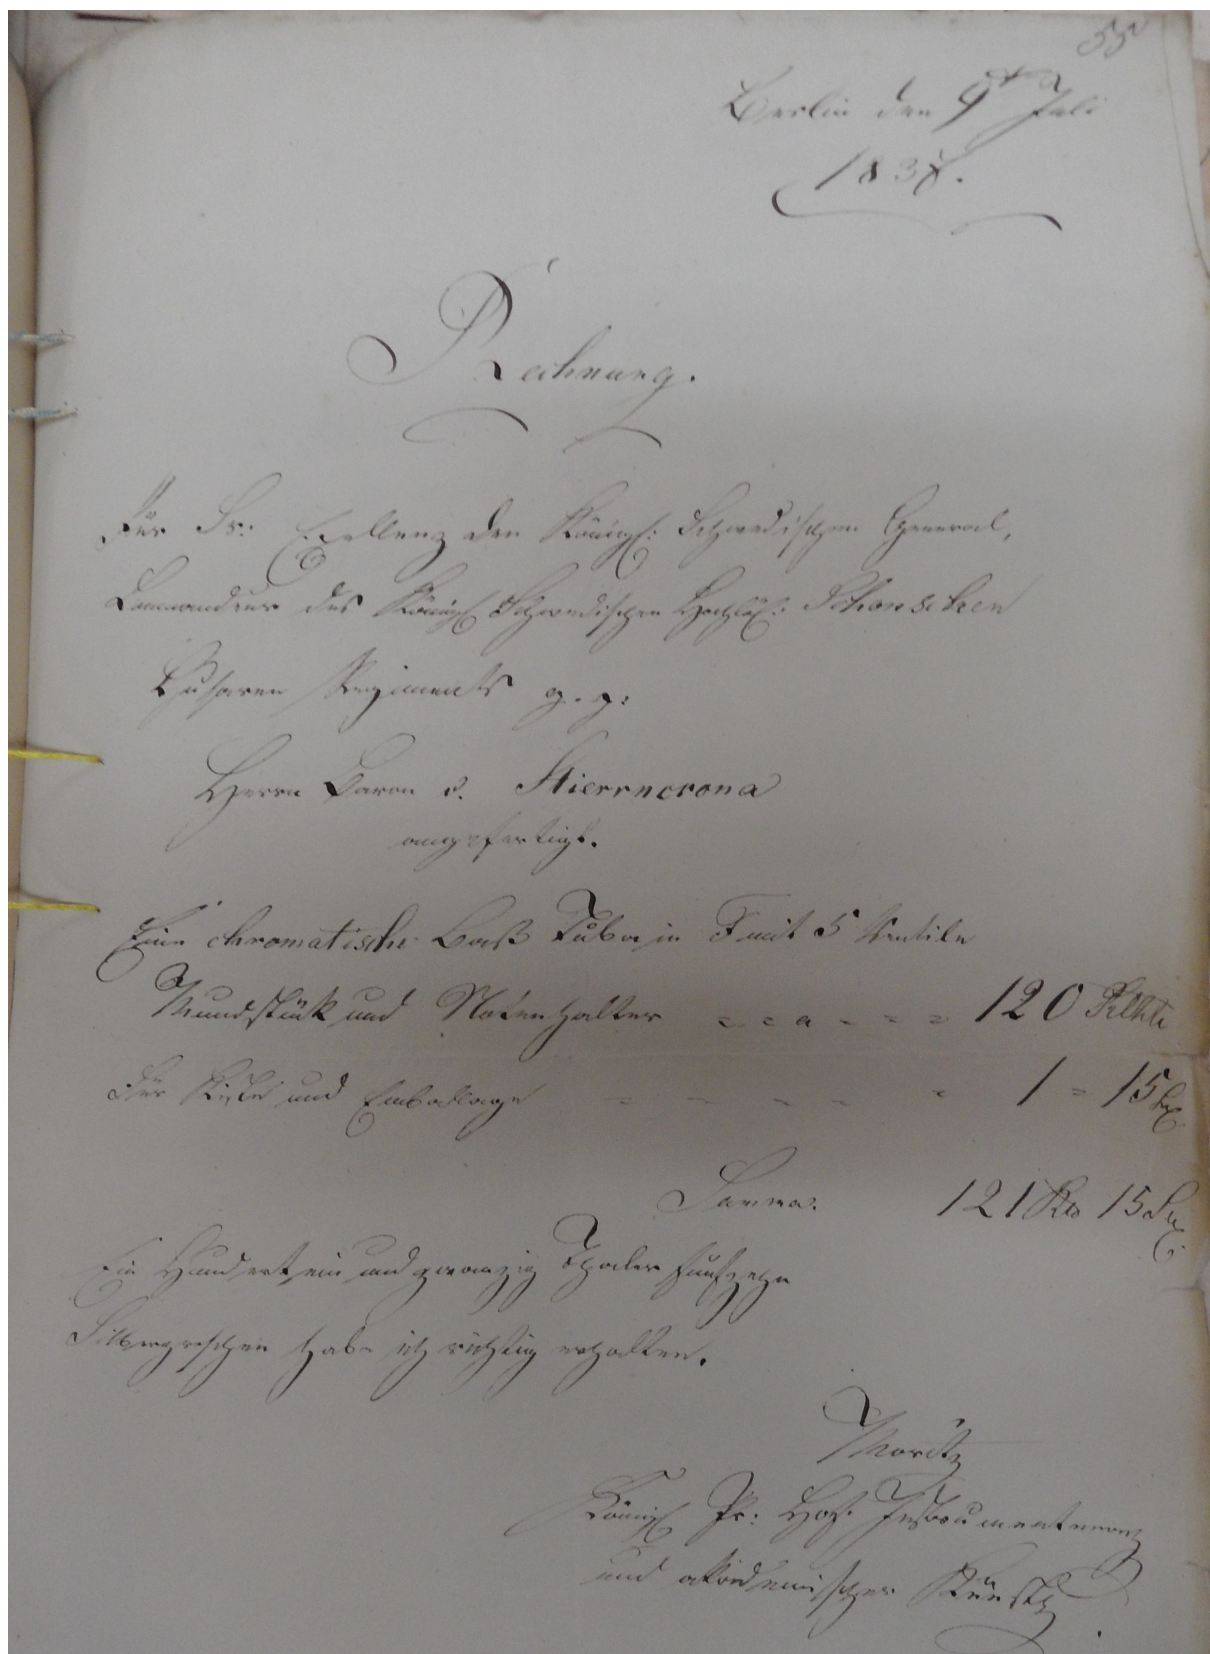 55
Berlin den 9ten Juli
1838.
Rechnung.
Für Sr: Exellenz den Königl: Schwedischen General,
Commandeur des Königl Schwedischen Hochlöbl: Schonschen
Husaren Regiments p. p:
Herrn Baron v. Stierrncrona
angefertigt.
Eine chromatische Baß Tuba in F mit 5 Ventile
Mundstück und Notenhalter = = a = = = 120 Thlr
Für Kiste und Emballage = = = = = = 1 = 15 Sg
Summa. 121 Rh 15 Sg
Ein Hundert ein und zwanzig Thaler fünfzehn
Silbergroschen habe ich richtig erhalten.
Moritz
Königl Pr: Hof Instrumentenm
und akademischer Künstl